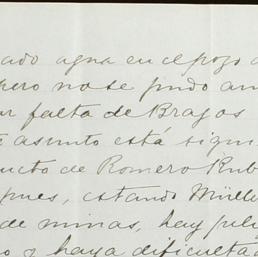 ado agua en el pozo d
pero no se pudo am
or falta de Brazos
e asunto está sigui
ducto de Romero Rub
spues, estando Mülle
de minas, hay pelig
o y haya dificultad